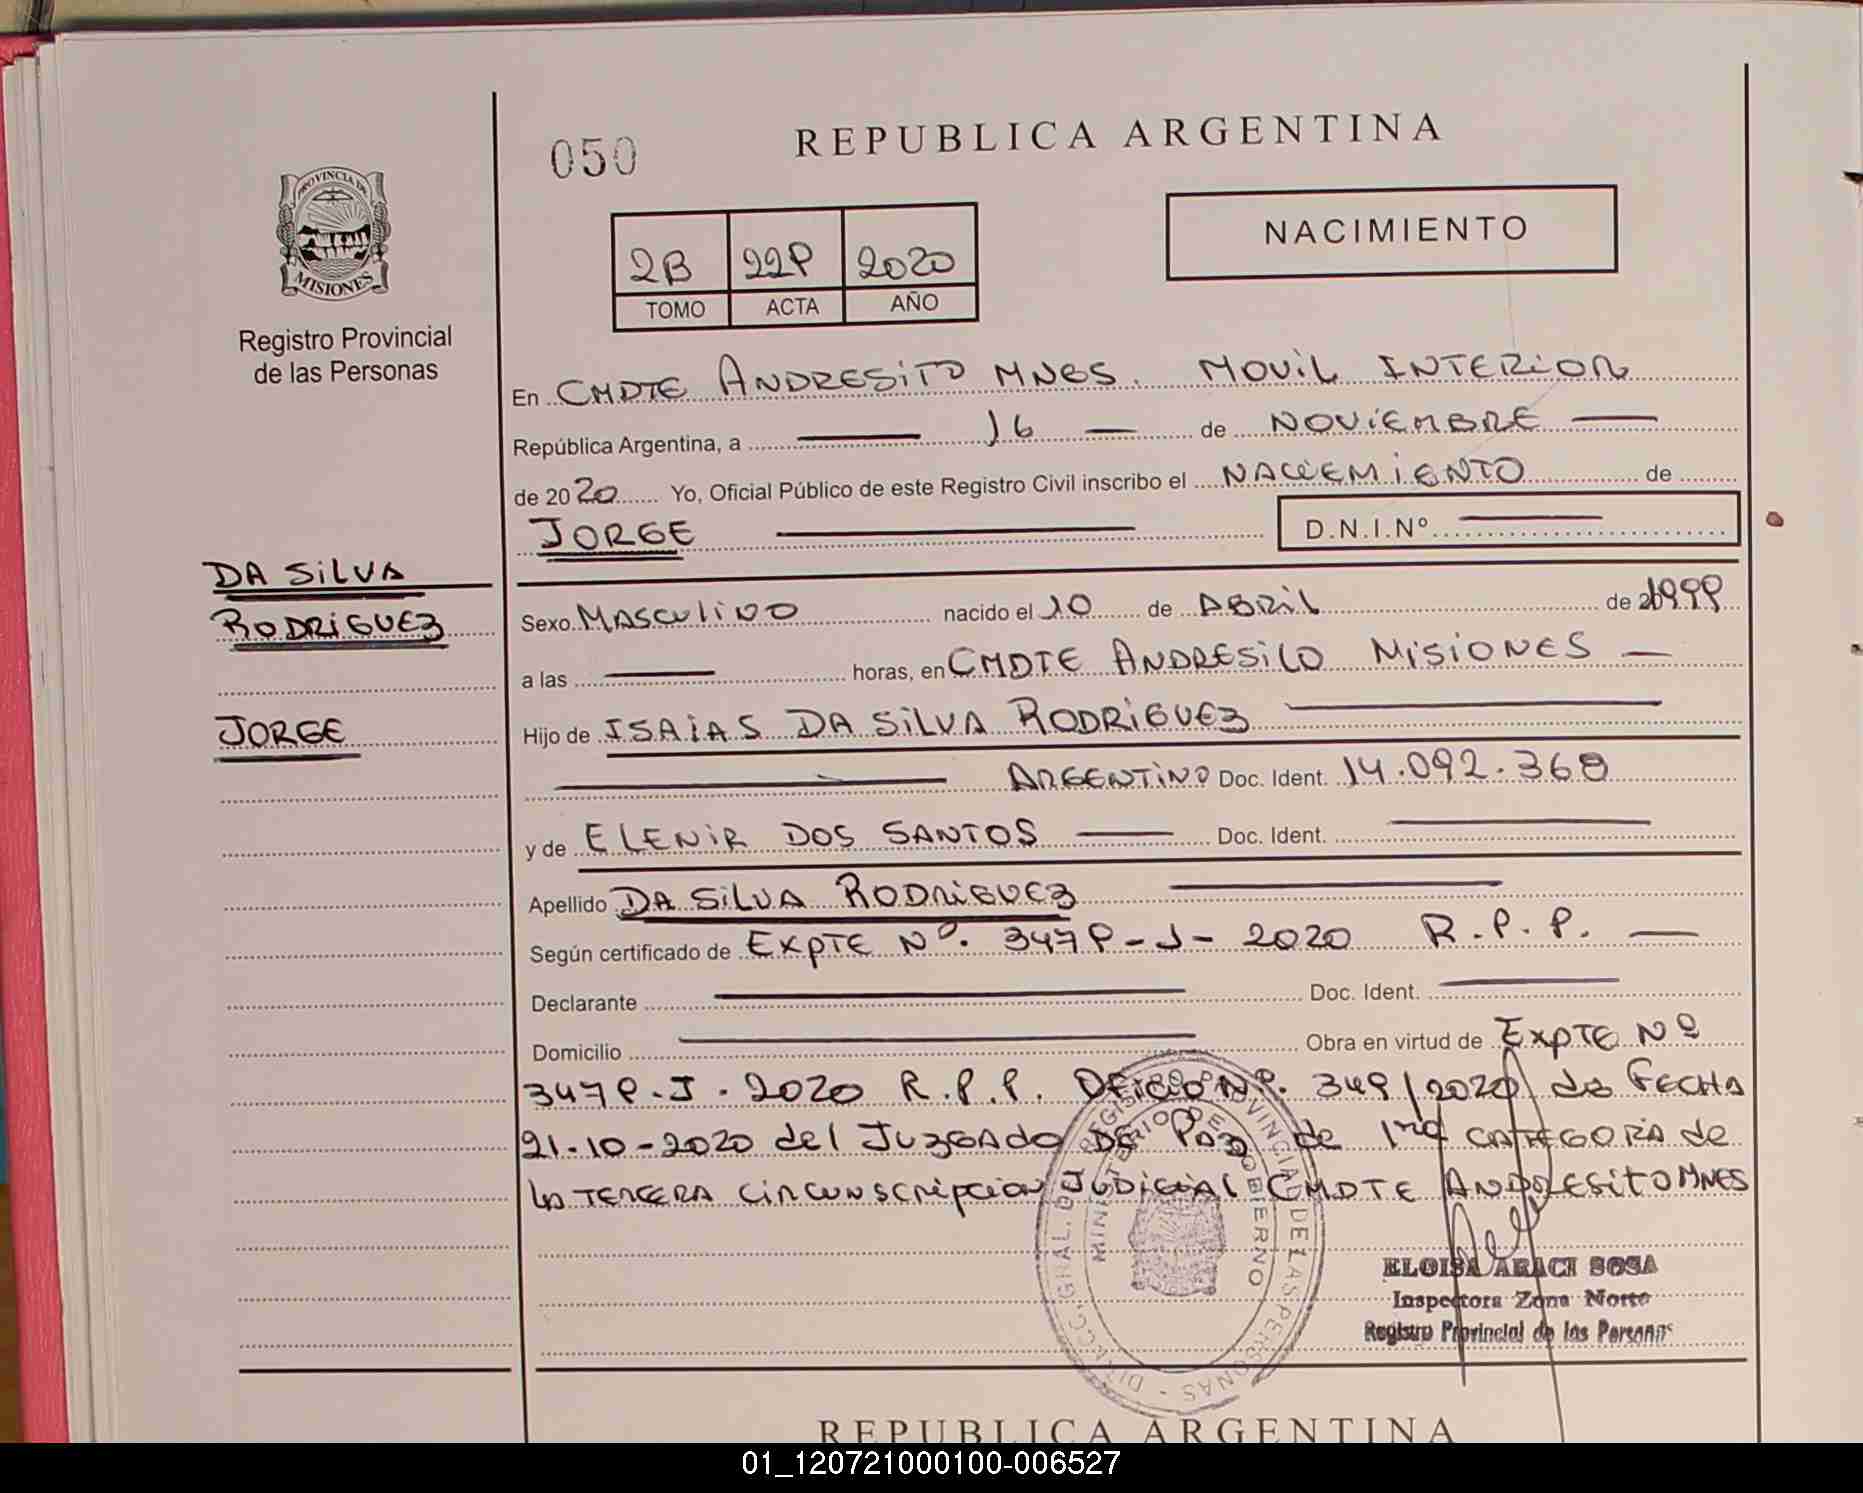 050
REPUBLICA ARGENTINA
PROVINCIA DE
MISIONES
Registro Provincial
de las Personas
2B 229 2020
TOMO ACTA AÑO
NACIMIENTO
En CMDTE ANDRESITO MNES. MOVIL INTERIOR
República Argentina, a 16 de NOVIEMBRE
de 2020 Yo, Oficial Público de este Registro Civil inscribo el NACIEMIENTO de
JORGE D.N.I.Nº
DA SILVA
RODRIGUEZ
JORGE
Sexo MASCULINO nacido el 10 de ABRIL de 1999
a las horas, en CMDTE ANDRESILO MISIONES
Hijo de ISAIAS DA SILVA RODRIGUEZ
ARGENTINO Doc. Ident. 14.092.368
y de ELENIR DOS SANTOS Doc. Ident.
Apellido DA SILVA RODRIGUEZ
Según certificado de EXPTE Nº. 3479-J-2020 R.P.P.
Declarante Doc. Ident.
Domicilio Obra en virtud de EXPTE Nº
3479-J-2020 R.P.P. OFICIO Nº. 349/2020 de FECHA
21-10-2020 del JUZGADO DE PAZ de 1ra CATEGORIA de
LA TERCERA CIRCUNSCRIPCION JUDICIAL CMDTE ANDRESITO MNES
DIRECC. GRAL. DEL REGISTRO PROVINCIAL DE LAS PERSONAS -
MINISTERIO DE GOBIERNO
ELOISA ARACI SOSA
Inspectora Zona Norte
Registro Provincial de las Personas
REPUBLICA ARGENTINA
01_120721000100-006527